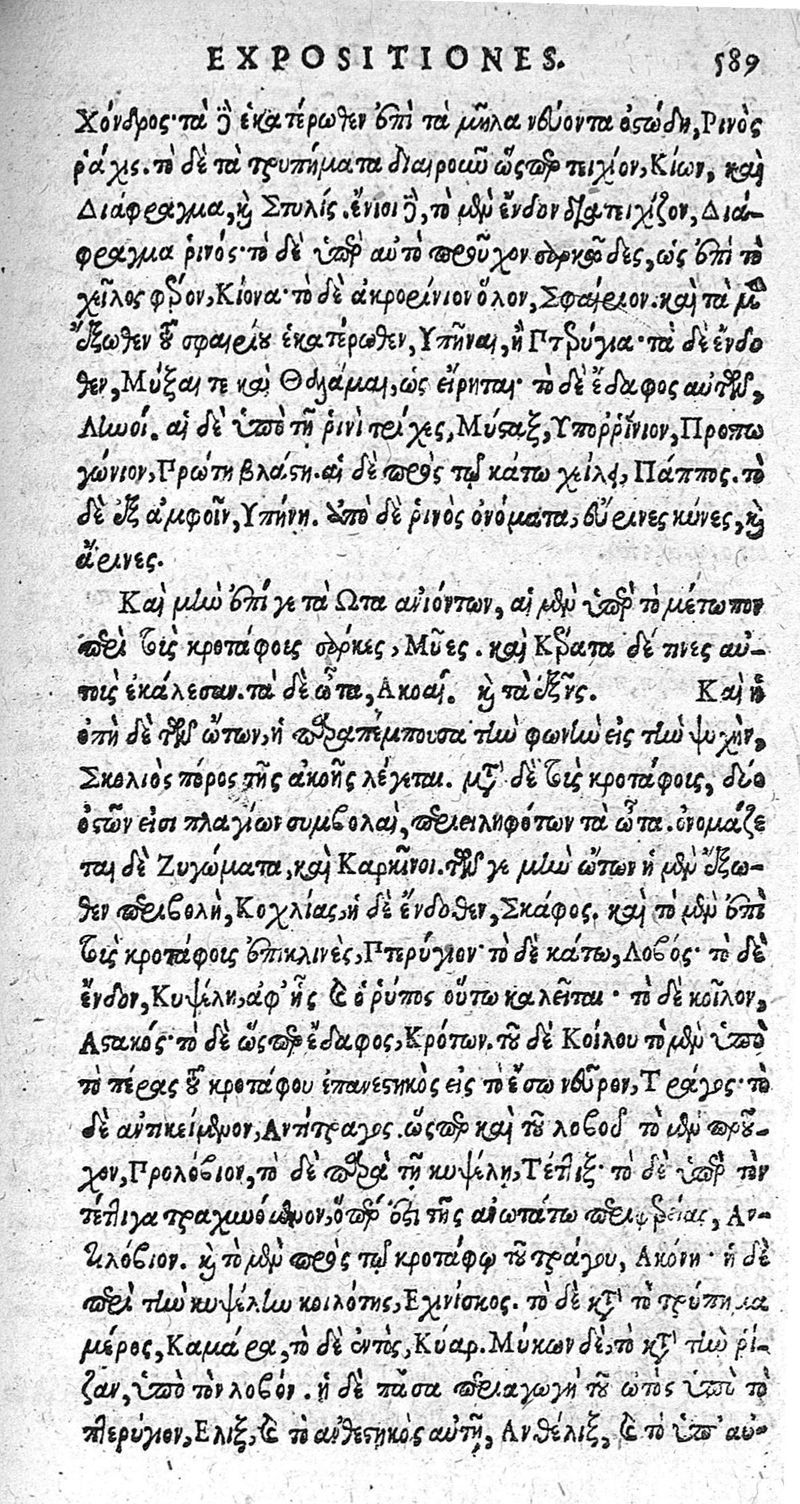 EXPOSITIONES. 589
Χόνδρος· τὰ δὲ ἑκατέρωθεν ἐπὶ τὰ μῆλα νεύοντα ὀστώδη, Ρινὸς
ῥάχις. τὸ δὲ τὰ τρυπήματα διαιροῦν ὥσπερ τειχίον, Κίων, καὶ
Διάφραγμα, καὶ Στυλίς. ἔνιοι δὲ, τὸ μὲν ἔνδον διατειχίζον, Διά-
φραγμα ῥινός· τὸ δὲ ὑπὲρ αὐτὸ προῦχον σαρκῶδες, ὡς ἐπὶ τὸ
χεῖλος φέρον, Κίονα· τὸ δὲ ἀκρορίνιον ὅλον, Σφαίριον. καὶ τὰ μὲν
ἔξωθεν τοῦ σφαιρίου ἑκατέρωθεν, Υπῆναι, ἢ Πτερύγια· τὰ δὲ ἔνδο
θεν, Μύξαι τε καὶ Θαλάμαι, ὡς εἴρηται· τὸ δὲ ἔδαφος αὐτῶν,
Ληνοί. αἱ δὲ ὑπὸ τῇ ῥινὶ τρίχες, Μύσταξ, Υποῤῥίνιον, Προπω
γώνιον, Πρώτη βλάστη. αἱ δὲ πρὸς τῷ κάτω χείλει, Πάππος. τὸ
δὲ ἐξ ἀμφοῖν, Υπήνη. ἀπὸ δὲ ῥινὸς ὀνόματα, εὔρινες κύνες, καὶ
ἄρινες.
Καὶ μὴν ἐπί γε τὰ Ωτα ἀνιόντων, αἱ μὲν ὑπὲρ τὸ μέτωπον
περὶ τοῖς κροτάφοις σάρκες, Μῦες. καὶ Κέρατα δέ τινες αὐ-
τοὺς ἐκάλεσαν. τὰ δὲ ὦτα, Ακοαί. καὶ τὰ ἑξῆς. Καὶ ἡ
ὀπὴ δὲ τῶν ὤτων, ἡ παραπέμπουσα τὴν φωνὴν εἰς τὴν ψυχὴν,
Σκολιὸς πόρος τῆς ἀκοῆς λέγεται. μετὰ δὲ τοῖς κροτάφοις, δύο
ὀστῶν εἰσι πλαγίων συμβολαὶ, περιειληφότων τὰ ὦτα. ὀνομάζε
ται δὲ Ζυγώματα, καὶ Καρκῖνοι. τῶν γε μὴν ὤτων ἡ μὲν ἔξω-
θεν περιβολὴ, Κοχλίας, ἡ δὲ ἔνδοθεν, Σκάφος. καὶ τὸ μὲν ἐπὶ
τοῖς κροτάφοις ἐπικλινὲς, Πτερύγιον· τὸ δὲ κάτω, Λοβός· τὸ δὲ
ἔνδον, Κυψέλη, ἀφ' ἧς καὶ ὁ ῥύπος οὕτω καλεῖται· τὸ δὲ κοῖλον,
Αστακός· τὸ δὲ ὥσπερ ἔδαφος, Κρότων. τοῦ δὲ Κοίλου τὸ μὲν ὑπὸ
τὸ πέρας τοῦ κροτάφου ἐπανεστηκὸς εἰς τὸ ἔσω νεῦρον, Τράγος· τὸ
δὲ ἀντικείμενον, Αντίτραγος. ὥσπερ καὶ τοῦ λοβοῦ τὸ μὲν προῦ-
χον, Προλόβιον, τὸ δὲ παρὰ τῇ κυψέλῃ, Τέττιξ· τὸ δὲ ὑπὲρ τὸν
τέττιγα τραχυνόμενον, ὅπερ ἐστὶ τῆς ἀνωτάτω περιφερείας, Αν-
τιλόβιον. καὶ τὸ μὲν πρὸς τῷ κροτάφῳ τοῦ τράγου, Ακόνη· ἡ δὲ
περὶ τὴν κυψέλην κοιλότης, Εχινίσκος. τὸ δὲ κατὰ τὸ τρύπημα
μέρος, Καμάρα, τὸ δὲ ἐντὸς, Κύαρ. Μύκων δὲ, τὸ κατὰ τὴν ῥί-
ζαν, ὑπὸ τὸν λοβόν. ἡ δὲ πᾶσα περιαγωγὴ τοῦ ὠτὸς ὑπὸ τὸ
πτερύγιον, Ελιξ, καὶ τὸ ἀνθεστηκὸς αὐτῇ, Ανθέλιξ, καὶ τὸ ὑπ' αὐ-